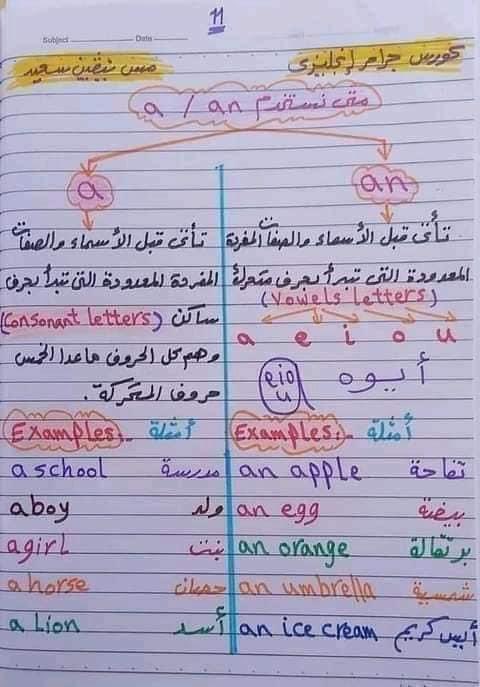 11
Subject Date
كورس جرامر إنجليزي
مس نيڤين سعيد
متى نستخدم a / an
an
تأتى قبل الأسماء والصفات المفردة
المعدودة التى تبدأ بحرف متحرك
(Vowels letters)
a e i o u
أيوه eio u
Examples:- أمثلة
an apple تفاحة
an egg بيضة
an orange برتقالة
an umbrella شمسية
an ice cream أيس كريم
a
تأتى قبل الأسماء والصفات
المفردة المعدودة التى تبدأ بحرف
ساكن (Consonant letters)
وهم كل الحروف ماعدا الخمس
حروف المتحركة.
Examples:- أمثلة
a school مدرسة
a boy ولد
a girl بنت
a horse حصان
a Lion أسد